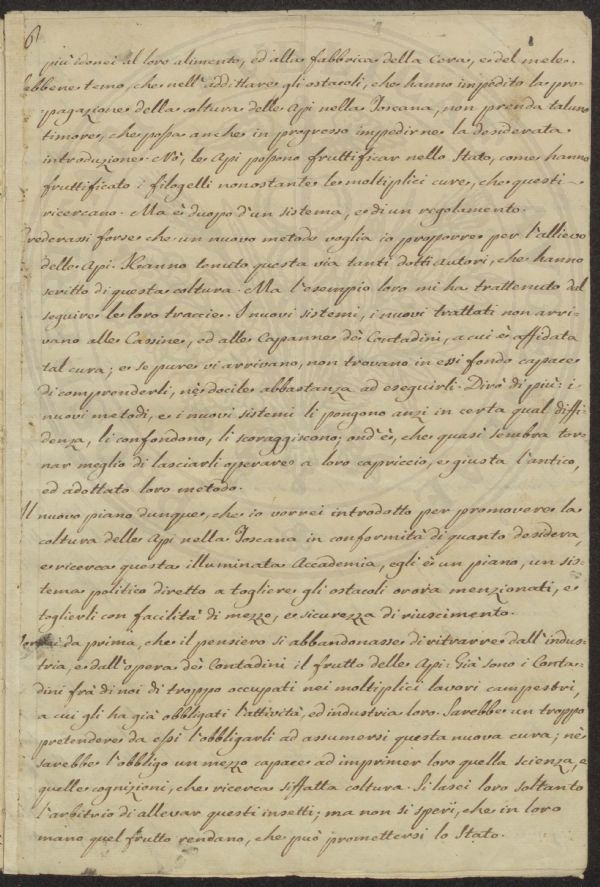 6
più idonei al loro alimento, ed alla fabbrica della Cera, e del mele.
ebbene temo, che nell'additare gli ostacoli, che hanno impedito la pro-
pagazione della coltura delle Api nella Toscana, non prenda taluno
timore, che possa anche in progresso impedirne la desiderata
introduzione. Nò, le Api possono fruttificar nello Stato, come hanno
fruttificato i filogelli nonostante le moltiplici cure, che questi
ricercano. Ma è duopo d'un sistema, e di un regolamento.
rederassi forse che un nuovo metodo voglia io proporre per l'allievo
delle Api. Hanno tenuto questa via tanti dotti Autori, che hanno
scritto di questa coltura. Ma l'esempio loro mi ha trattenuto dal
seguire le loro traccie. I nuovi sistemi, i nuovi trattati non arri-
vano alle Cassine, ed alle Capanne dè Contadini, a cui è affidata
tal cura; e se pure vi arrivano, non trovano in essi fondo capace
di comprenderli, nè docile abbastanza ad eseguirli. Dirò di più: i
nuovi metodi, e i nuovi sistemi li pongono anzi in certa qual diffi-
denza, li confondono, li scoraggiscono; ond'è, che quasi sembra tor-
nar meglio di lasciarli operare a loro capriccio, e giusta l'antico,
ed adottato loro metodo.
Il nuovo piano dunque, che io vorrei introdotto per promovere la
coltura delle Api nella Toscana in conformità di quanto desidera,
e ricerca questa illuminata Accademia, egli è un piano, un sis-
tema politico diretto a togliere gli ostacoli ovora menzionati, e
toglierli con facilità di mezzo, e sicurezza di riuscimento.
da prima, che il pensiero si abbandonasse di ritrarre dall'indus-
tria, e dall'opera dè Contadini il frutto delle Api: Già sono i Conta-
dini frà di noi di troppo occupati nei moltiplici lavori campestri,
a cui gli ha già obbligati l'attività, ed industria loro. Sarebbe un troppo
pretendere da essi l'obbligarli ad assumersi questa nuova cura; nè
sarebbe l'obbligo un mezzo capace ad imprimer loro quella scienza, e
quelle cognizioni, che ricerca siffatta coltura. Si lasci loro soltanto
l'arbitrio di allevar questi insetti; ma non si speri, che in loro
mano quel frutto rendano, che può promettersi lo Stato.